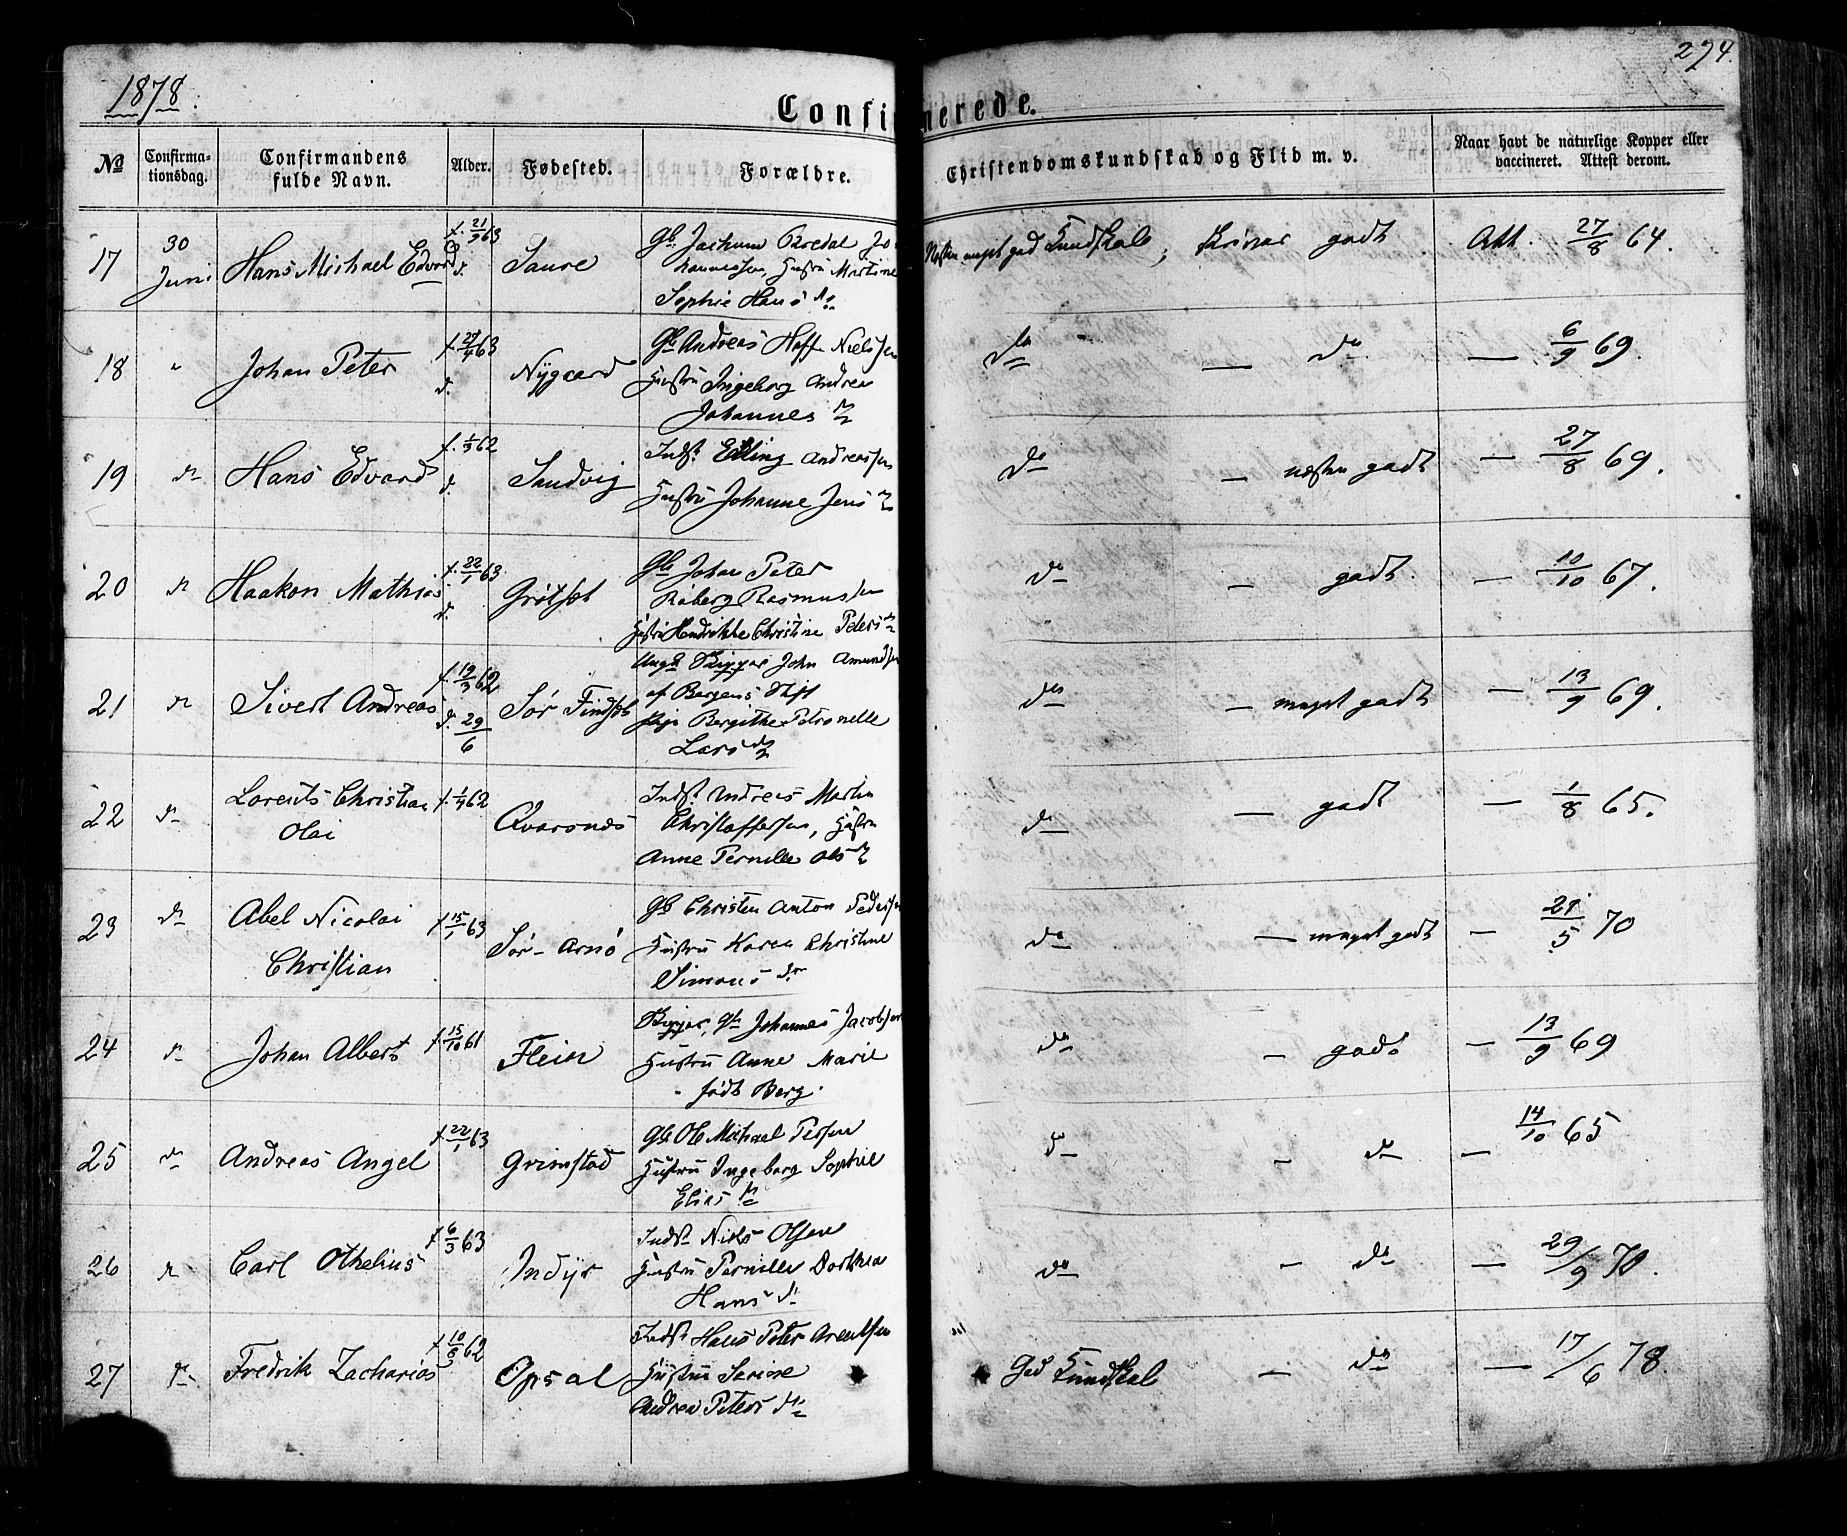 1878.
274.
Confirmerede.
No
Confirma-
tionsdag.
Confirmandens
fulde Navn.
Alder.
Fødested.
Forældre.
Christendomskundskab og Flid m. v.
Naar havt de naturlige Kopper eller
vaccineret. Attest derom.
17
30
Juni
Hans Michael Edvard
f. 21/9 63
d.
Saure
Gb Jachum Bredal Jo-
hannessen, Hustru Martine
Sophie Hans dr.
Næsten meget god Kundskab,
godt
Att. 27/8 64.
18
"
Johan Peter
f. 27/4 63
d.
Nygaard
Gb Andreas Hoff Nielssen
Hustru Ingeborg Andrea
Johannes dr
do
— do
— 6/9 69.
19
do
Hans Edvard
f. 1/3 62
d.
Sandvig
Inds. Elling Andreassen
Hustru Johanne Jens dr
do
— næsten godt
— 27/8 69.
20
do
Haakon Mathias
f. 22/1 63
d.
Grötset
Gb Johan Peter
Roberg Rasmussen
Hustru Hendrikke Christine Peters dr
do
— godt
— 10/10 67.
21
do
Sivert Andreas
f. 19/3 62
d. 29/6
Sör Findset
Ungk Skipper John Amundsen
af Bergens Stift
Pige Bergithe Petronelle
Lars dr
do
— meget godt
— 13/9 69.
22
do
Lorents Christian
Olai
f. 1/4 62
Qvarsnes
Inds. Andreas Martin
Christoffersen, Hustru
Anne Pernille Ols dr
do
— godt
— 1/8 65.
23
do
Abel Nicolai
Christian
f 15/1 63
Sör-Arnö
Gb Christen Anton Pedersen
Hustru Karen Christine
Simons dr
do
— meget godt
— 21/5 70
24
do
Johan Albert
f 15/10 61
Flein
Skipper, Gb Johannes Jacobsen
Hustru Anne Marie
født Berg.
do
— godt
— 13/9 69
25
do
Andreas Angel
f 22/1 63
Grimstad
Gb Ole Michael Petersen
Hustru Ingeborg Sophie
Elias dr
do
— do —
14/10 65
26
do
Carl Othelius
f. 6/3 63
Indyr
Inds. Niels Olsen
Hustru Pernille Dorthea
Hans dr
do
— do
— 29/9 70.
27
do
Fredrik Zacharias
f. 10/8 62
Opsal
Inds. Hans Peter Arentsen
Hustru Serine
Andrea Peters dr
God Kundskab
— do
— 17/6 78.